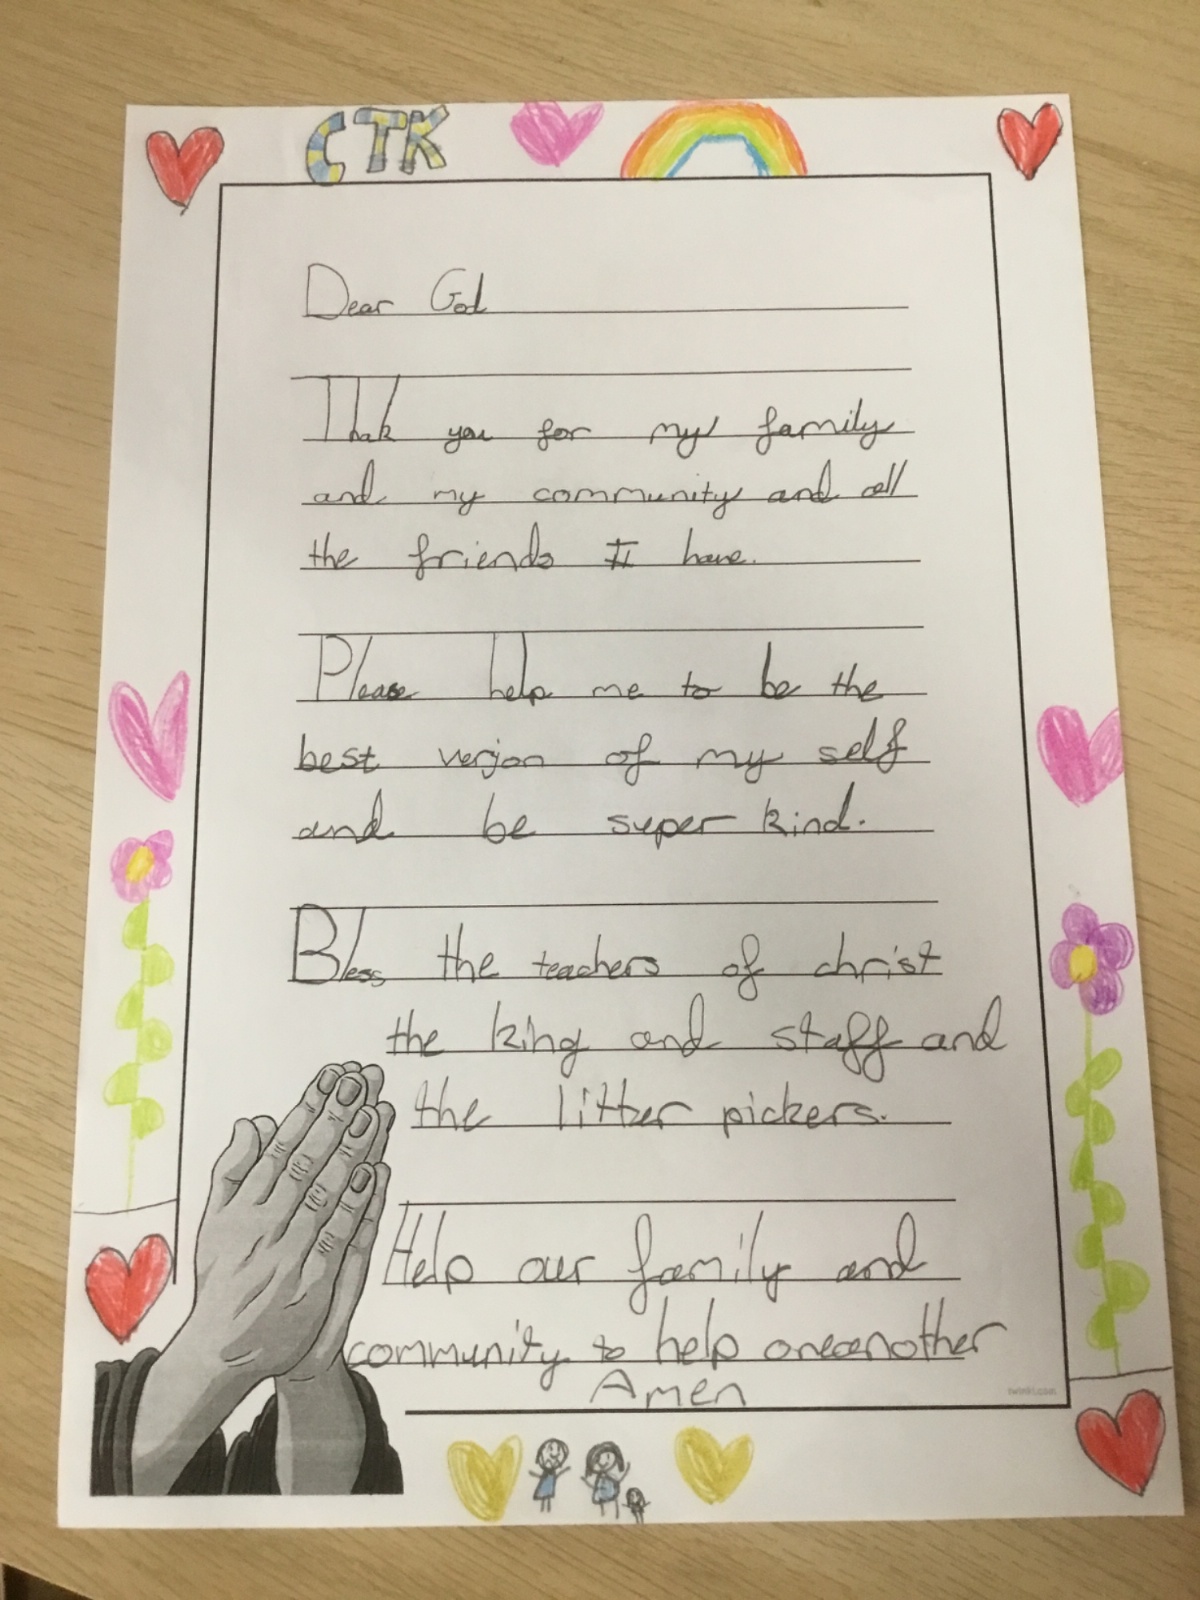 CTK
Dear God
Thak you for my family
and my community and all
the friends I have.
Please help me to be the
best verjon of my self
and be super kind.
Bless the teachers of christ
the king and staff and
the litter pickers.
Help our family and
community to help oneanother
Amen
twinkl.com